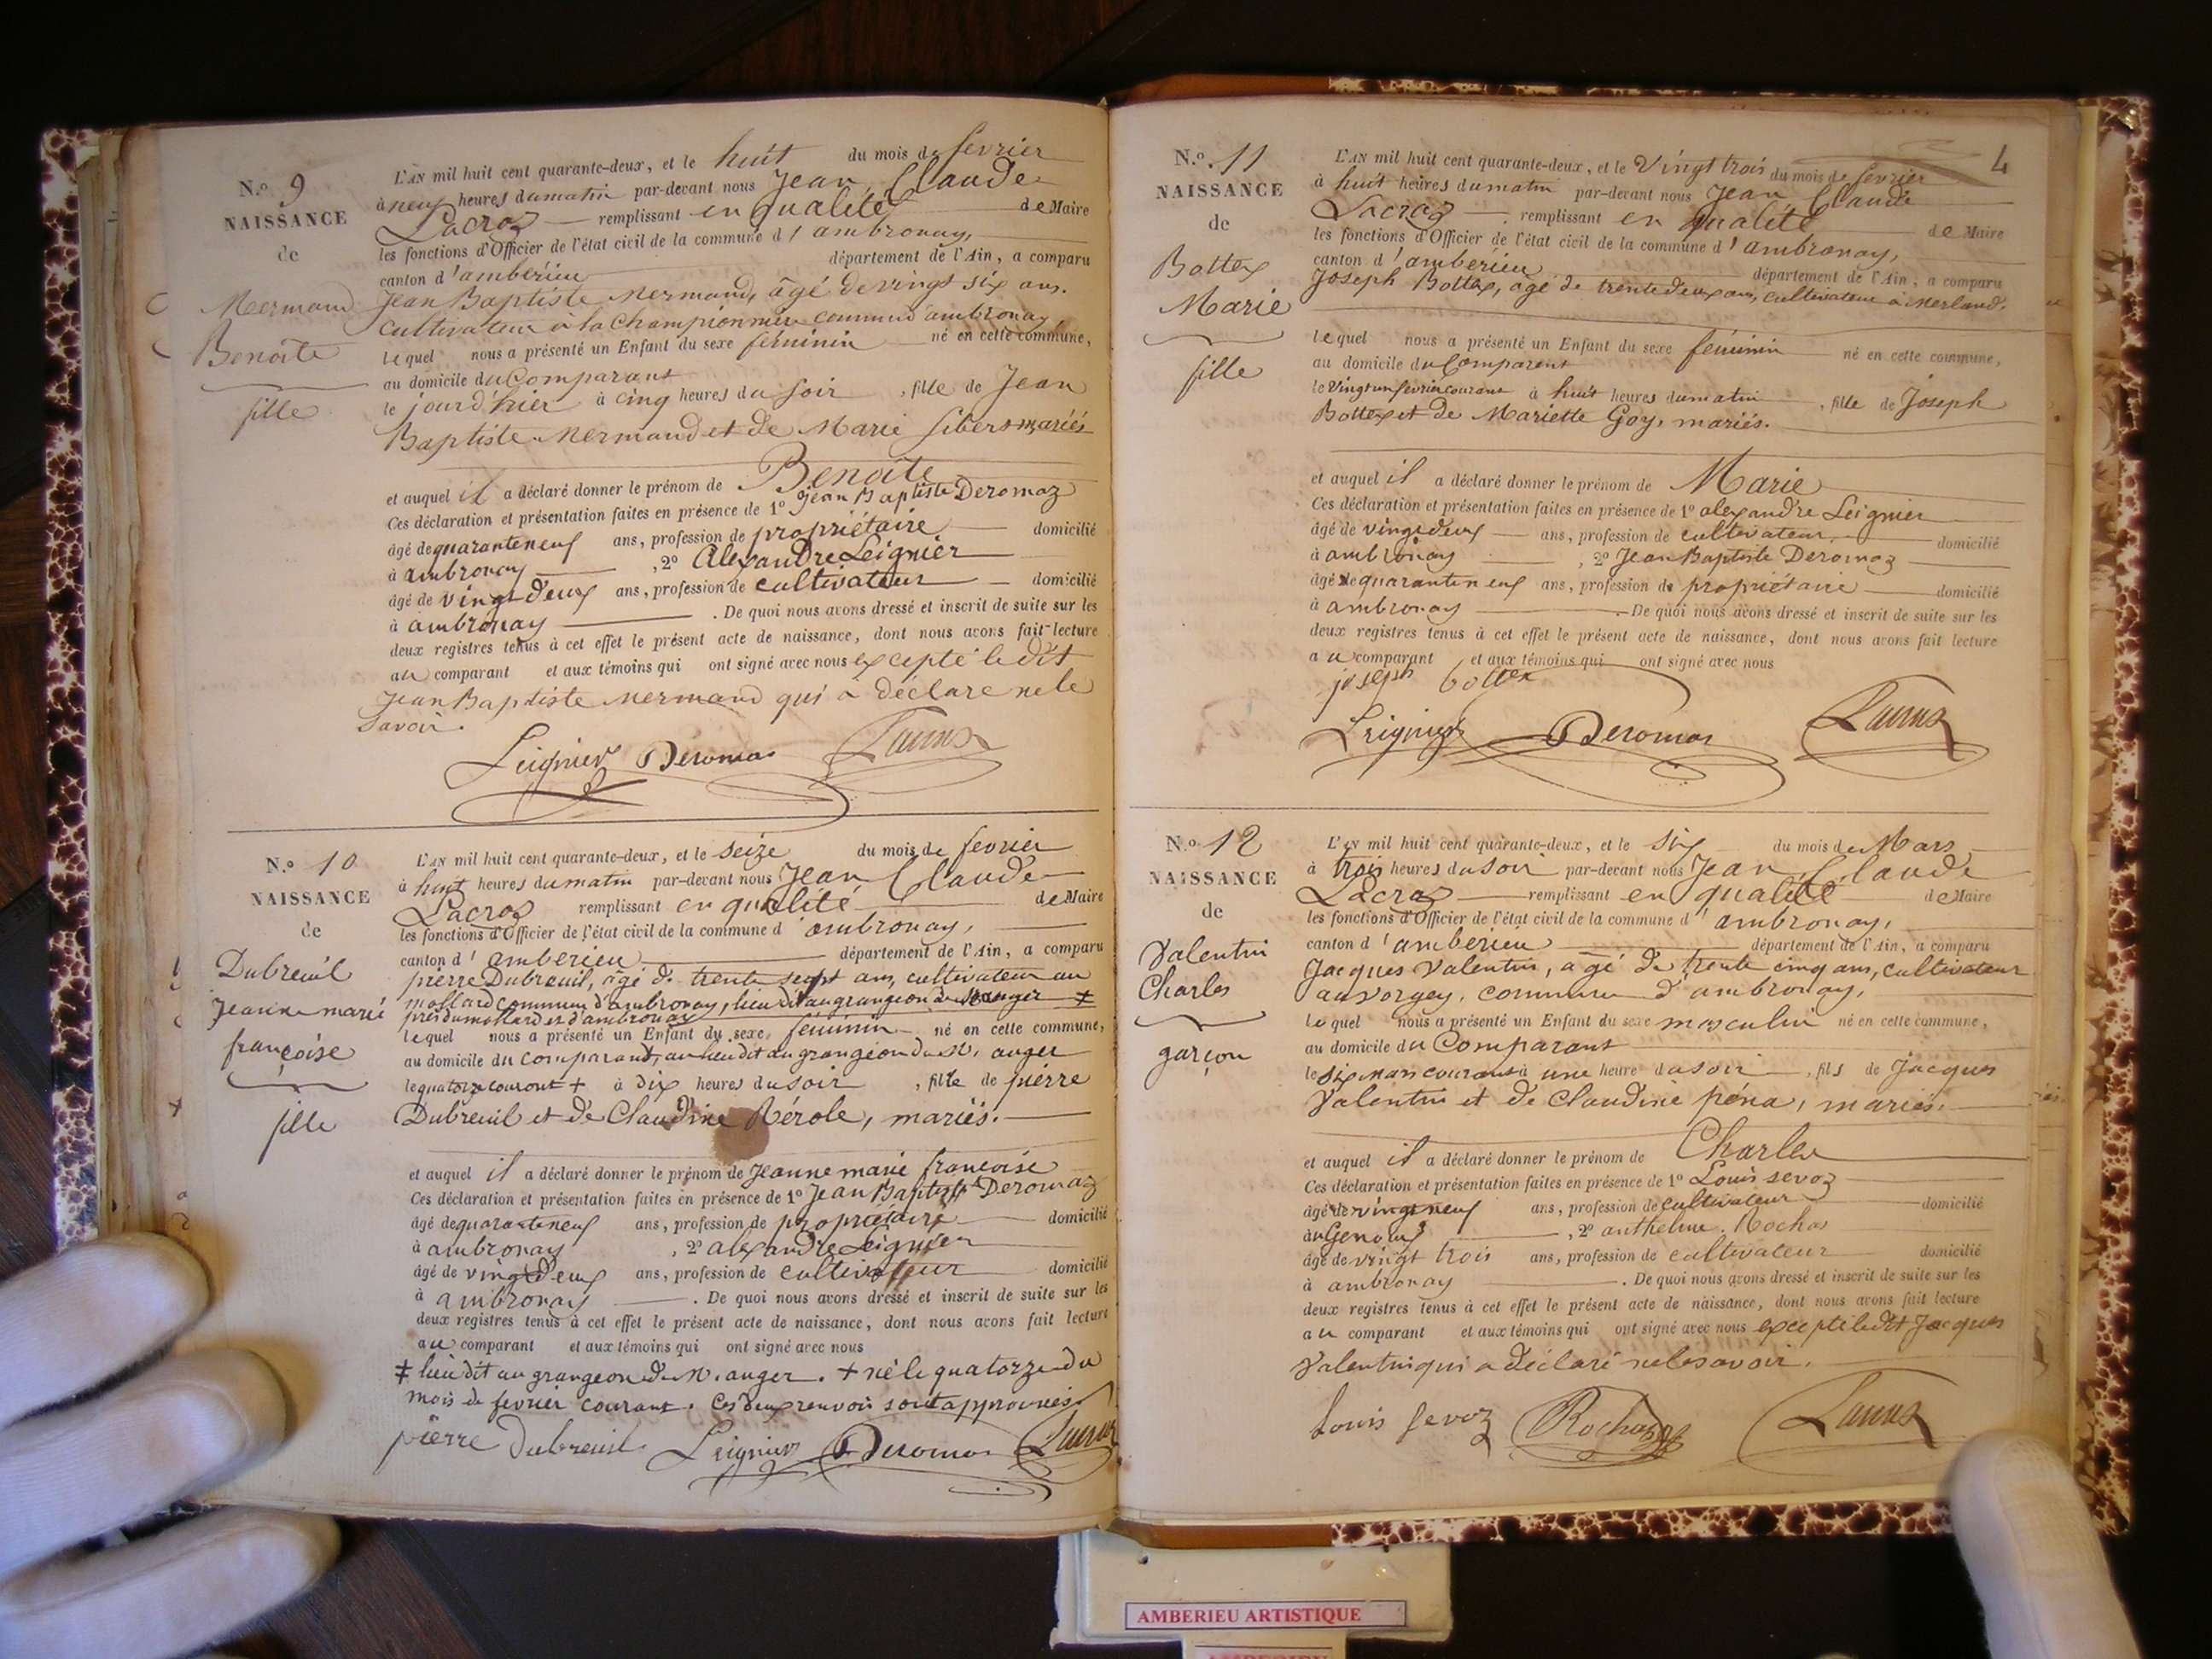 N.º 9
NAISSANCE
de
Mermand
Benoite
fille
L'AN mil huit cent quarante-deux, et le huit du mois de fevrier
à neuf heures du matin par-devant nous Jean Claude
Lacroz remplissant en qualité de Maire
les fonctions d'Officier de l'état civil de la commune d'ambronay,
canton d'amberieu département de l'Ain, a comparu
Jean Baptiste Mermand, âgé de vingt six ans.
Cultivateur à la Championnière commune d'ambronay
lequel nous a présenté un Enfant du sexe féminin né en cette commune,
au domicile du Comparant
le jourd'hier à cinq heures du soir, fille de Jean
Baptiste Mermand et de Marie mariés
et auquel il a déclaré donner le prénom de Benoite
Ces déclaration et présentation faites en présence de 1º Jean Baptiste Deromaz
âgé de quarante neuf ans, profession de propriétaire domicilié
à ambronay, 2º Alexandre Leignier
âgé de vingt deux ans, profession de cultivateur domicilié
à ambronay. De quoi nous avons dressé et inscrit de suite sur les
deux registres tenus à cet effet le présent acte de naissance, dont nous avons fait lecture
au comparant et aux témoins qui ont signé avec nous excepté le dit
Jean Baptiste Mermand qui a déclaré ne le
Savoir.
Leignier Deromas Lacroz
N.º 10
NAISSANCE
de
Dubreuil
Jeanne marie
françoise
fille
L'AN mil huit cent quarante-deux, et le seize du mois de fevrier
à huit heures du matin par-devant nous Jean Claude
Lacroz remplissant en qualité de Maire
les fonctions d'Officier de l'état civil de la commune d'ambronay,
canton d'amberieu département de l'Ain, a comparu
pierre Dubreuil, âgé de trente sept ans, cultivateur au
mollard commune d'ambronay, lieu dit au grangeon de M. auger ‡
près du mollard et d'ambronay
lequel nous a présenté un Enfant du sexe féminin né en cette commune,
au domicile du comparant, au lieu dit au grangeon du M. auger
le quatorze courant + à dix heures du soir, fille de pierre
Dubreuil et de Claudine Rérole, mariés.
et auquel il a déclaré donner le prénom de Jeanne marie françoise
Ces déclaration et présentation faites en présence de 1º Jean Baptiste Deromaz
âgé de quarante neuf ans, profession de propriétaire domicilié
à ambronay, 2º alexandre Leignier
âgé de vingt deux ans, profession de cultivateur domicilié
à ambronay. De quoi nous avons dressé et inscrit de suite sur les
deux registres tenus à cet effet le présent acte de naissance, dont nous avons fait lecture
au comparant et aux témoins qui ont signé avec nous
‡ lieu dit au grangeon de M. auger. + né le quatorze du
mois de fevrier courant. Ces deux renvois sont approuvés
pierre Dubreuil Leignier Deromas Lacroz
4
N.º 11
NAISSANCE
de
Bottex
Marie
fille
L'AN mil huit cent quarante-deux, et le Vingt trois du mois de fevrier
à huit heures du matin par-devant nous Jean Claude
Lacroz remplissant en qualité de Maire
les fonctions d'Officier de l'état civil de la commune d'ambronay,
canton d'amberieu département de l'Ain, a comparu
Joseph Bottex, âgé de trente deux ans, cultivateur à Merland.
lequel nous a présenté un Enfant du sexe féminin né en cette commune,
au domicile du Comparant
le Vingt un fevrier courant à huit heures du matin, fille de Joseph
Bottex et de Mariette Goy, mariés.
et auquel il a déclaré donner le prénom de Marie
Ces déclaration et présentation faites en présence de 1º alexandre Leignier
âgé de vingt deux ans, profession de cultivateur domicilié
à ambronay, 2º Jean Baptiste Deromaz
âgé de quarante neuf ans, profession de propriétaire domicilié
à ambronay. De quoi nous avons dressé et inscrit de suite sur les
deux registres tenus à cet effet le présent acte de naissance, dont nous avons fait lecture
au comparant et aux témoins qui ont signé avec nous
joseph bottex
Leignier Deromas Lacroz
N.º 12
NAISSANCE
de
Valentin
Charles
garçon
L'AN mil huit cent quarante-deux, et le Six du mois de Mars
à trois heures du soir par-devant nous Jean Claude
Lacroz remplissant en qualité de Maire
les fonctions d'Officier de l'état civil de la commune d'ambronay,
canton d'amberieu département de l'Ain, a comparu
Jacques Valentin, âgé de trente cinq ans, cultivateur
au vorgey, commune d'ambronay,
lequel nous a présenté un Enfant du sexe masculin né en cette commune,
au domicile du Comparant
le six mars courant à une heure du soir, fils de Jacques
Valentin et de Claudine péna, mariés.
et auquel il a déclaré donner le prénom de Charles
Ces déclaration et présentation faites en présence de 1º Louis Sevoz
âgé de vingt neuf ans, profession de cultivateur domicilié
au Genoud, 2º anthelme Rochas
âgé de vingt trois ans, profession de cultivateur domicilié
à ambronay. De quoi nous avons dressé et inscrit de suite sur les
deux registres tenus à cet effet le présent acte de naissance, dont nous avons fait lecture
au comparant et aux témoins qui ont signé avec nous excepté ledit Jacques
Valentin qui a déclaré ne le savoir.
Louis Sevoz Rochas Lacroz
AMBERIEU ARTISTIQUE
AMBERIEU